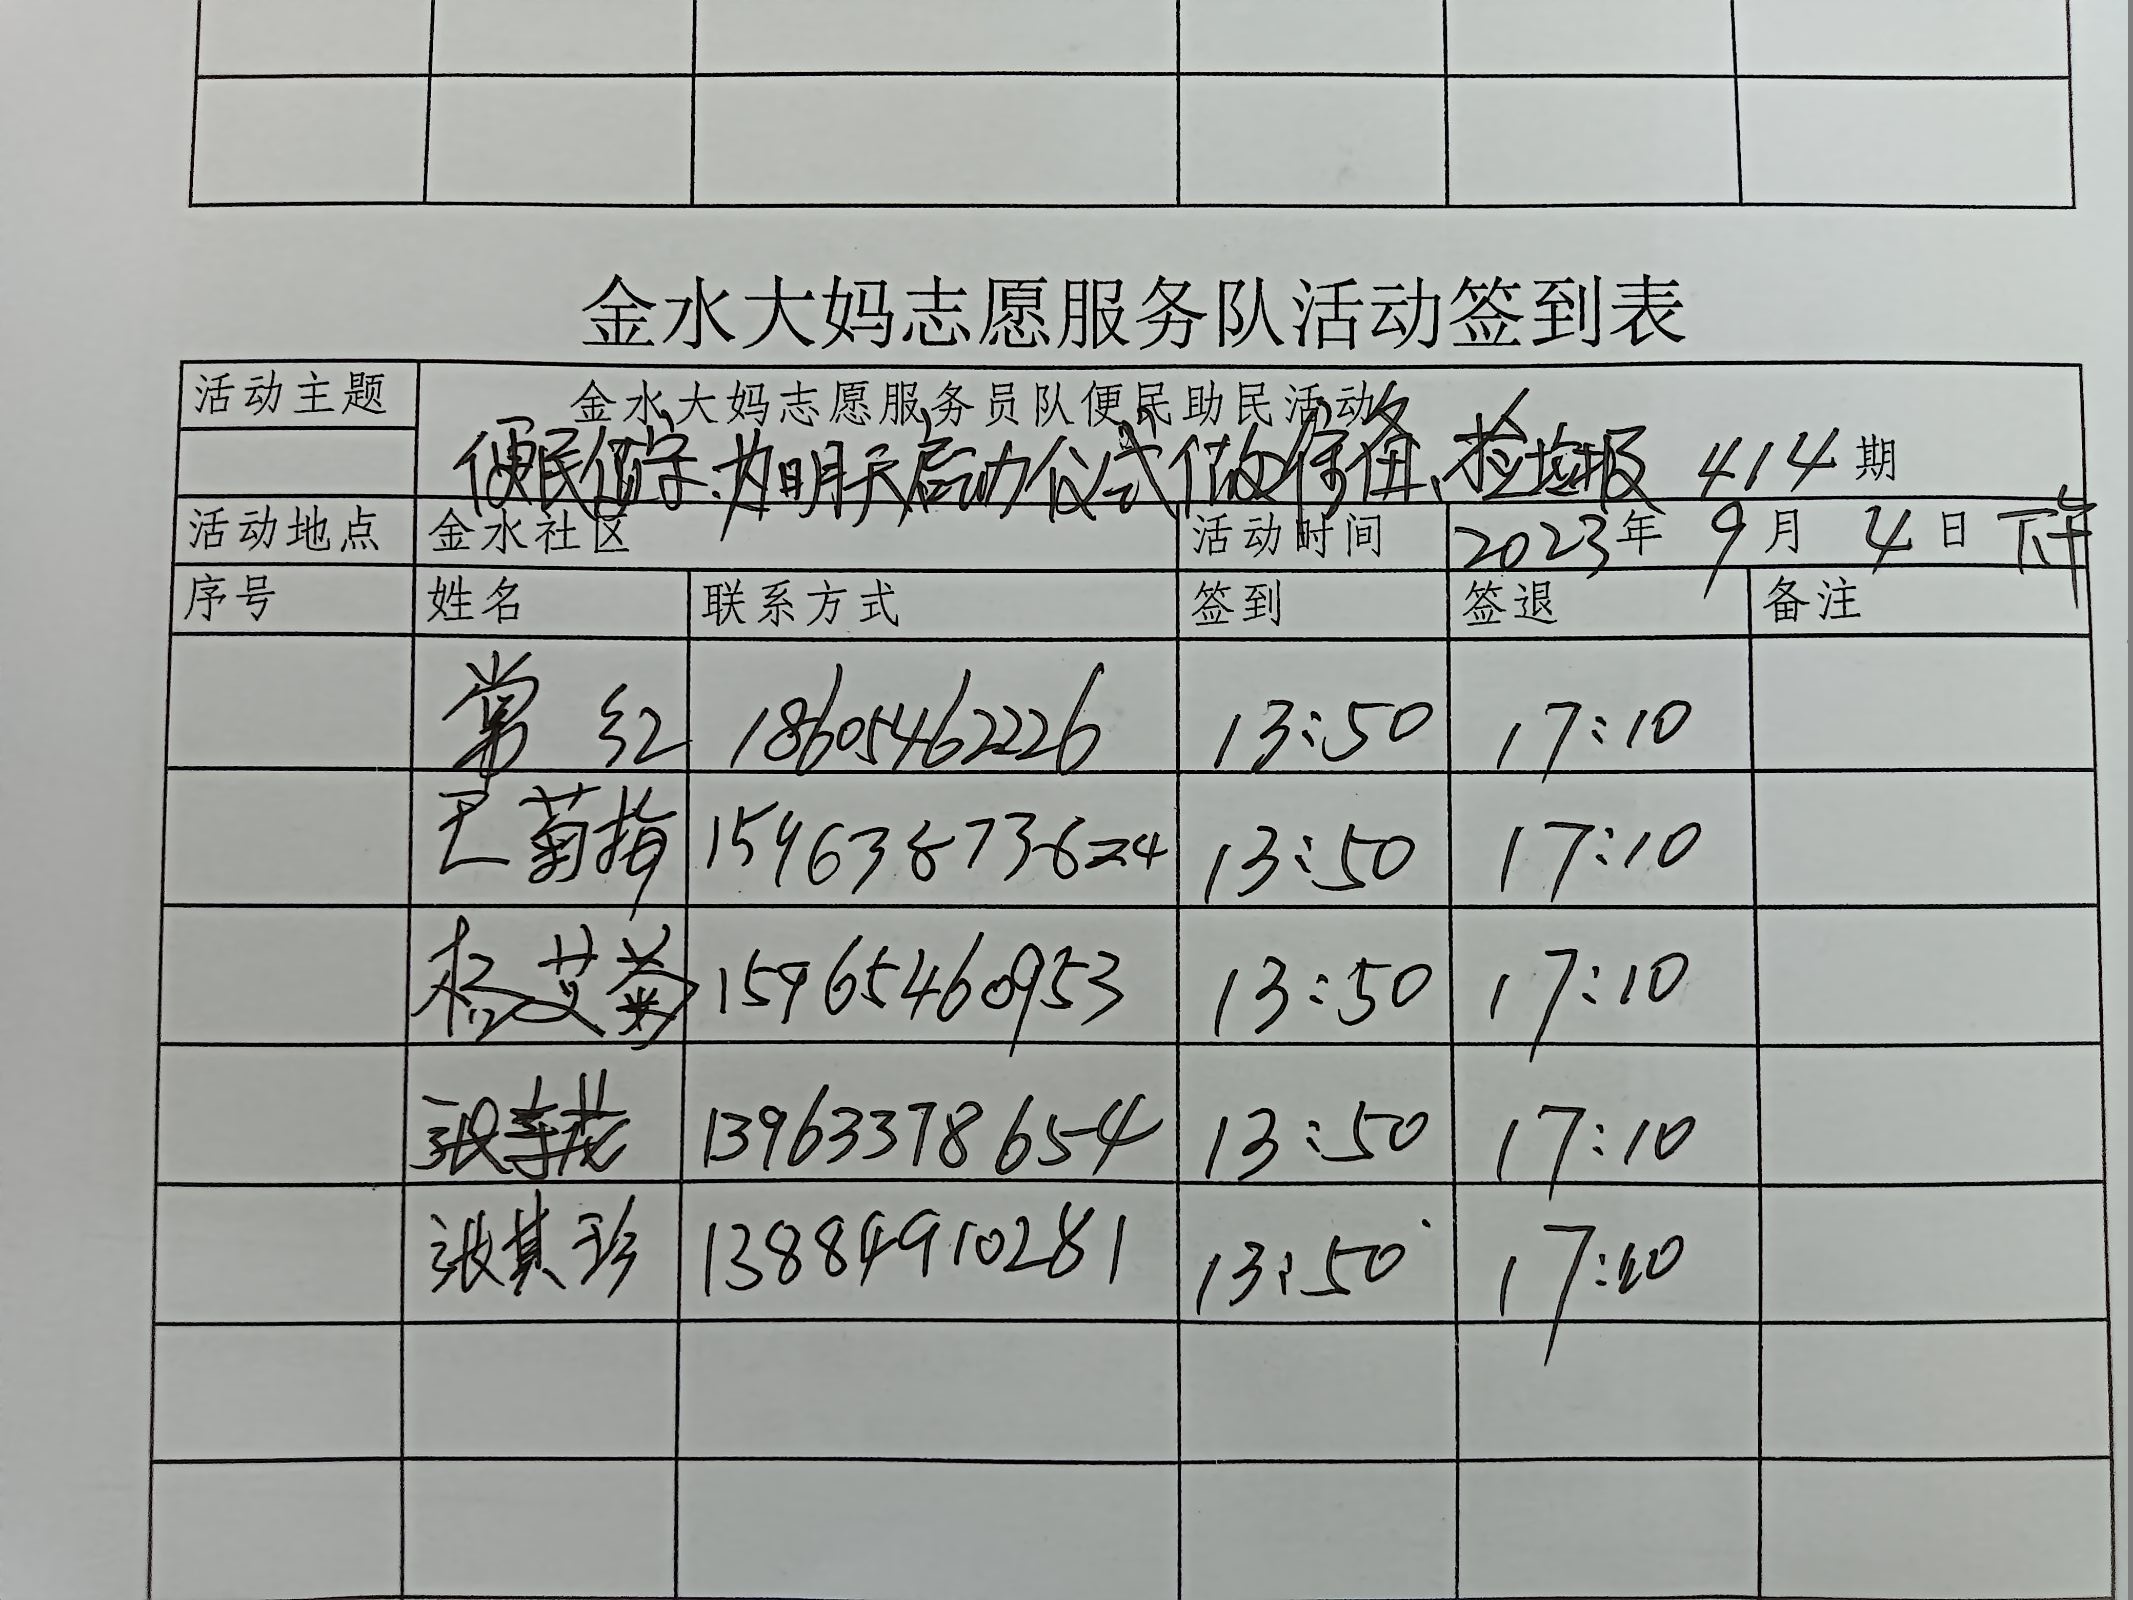 金水大妈志愿服务队活动签到表
活动主题 金水大妈志愿服务员队便民助民活动
便民值守、为明天启动仪式做准备、捡垃圾 414期
活动地点 金水社区 活动时间 2023年9月4日下午
序号 姓名 联系方式 签到 签退 备注
常红 18605462226 13:50 17:10
王菊梅 15963873624 13:50 17:10
杨艾菊 15965460953 13:50 17:10
张 13963378654 13:50 17:10
张其珍 13884910281 13:50 17:10